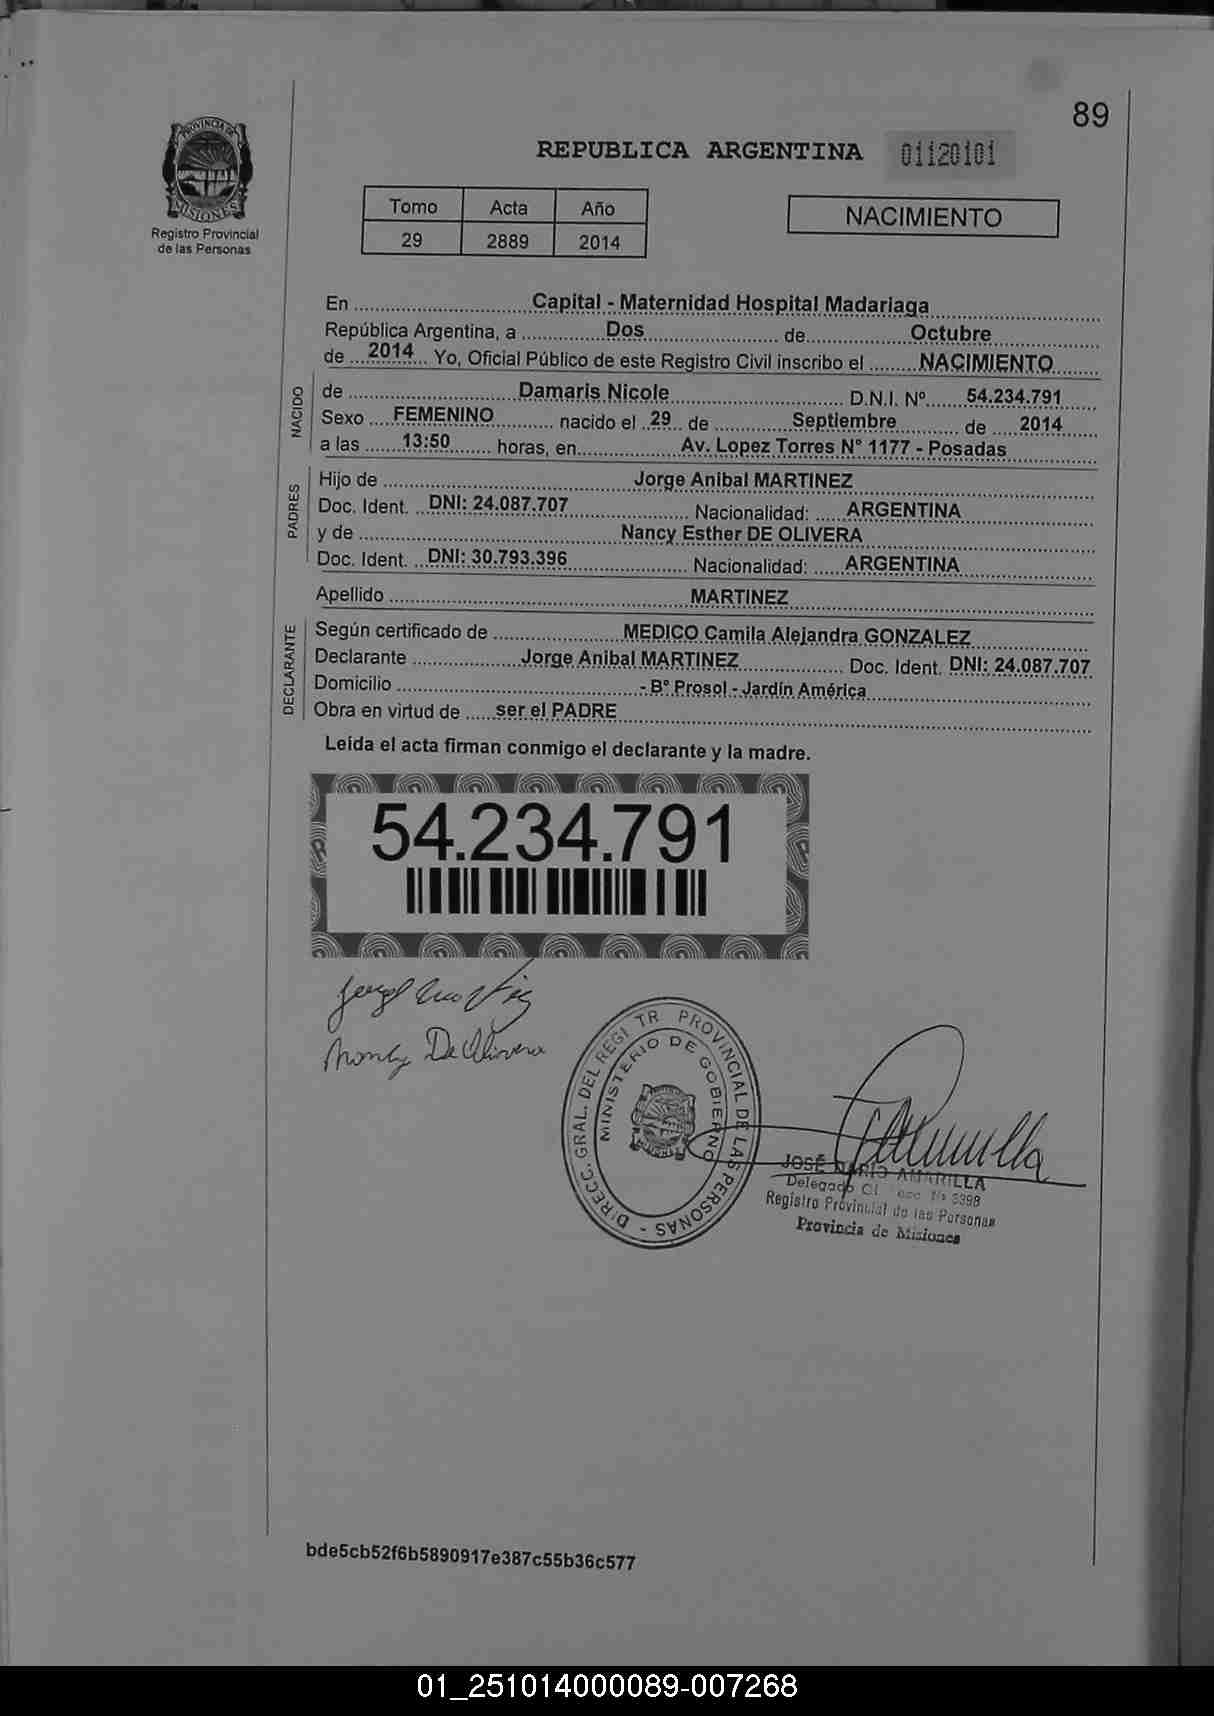 89
PROVINCIA DE
MISIONES
Registro Provincial
de las Personas
REPUBLICA ARGENTINA 01120101
Tomo Acta Año
29 2889 2014
NACIMIENTO
En Capital - Maternidad Hospital Madariaga
República Argentina, a Dos de Octubre
de 2014 Yo, Oficial Público de este Registro Civil inscribo el NACIMIENTO
NACIDO
de Damaris Nicole D.N.I. Nº 54.234.791
Sexo FEMENINO nacido el 29 de Septiembre de 2014
a las 13:50 horas, en Av. Lopez Torres N° 1177 - Posadas
PADRES
Hijo de Jorge Anibal MARTINEZ
Doc. Ident. DNI: 24.087.707 Nacionalidad: ARGENTINA
y de Nancy Esther DE OLIVERA
Doc. Ident. DNI: 30.793.396 Nacionalidad: ARGENTINA
Apellido MARTINEZ
DECLARANTE
Según certificado de MEDICO Camila Alejandra GONZALEZ
Declarante Jorge Anibal MARTINEZ Doc. Ident. DNI: 24.087.707
Domicilio - B° Prosol - Jardín América
Obra en virtud de ser el PADRE
Leída el acta firman conmigo el declarante y la madre.
54.234.791
De Olivera
DIRECC. GRAL. DEL REGI TR PROVINCIAL DE LAS PERSONAS -
MINISTERIO DE GOBIERNO
JOSÉ DARÍO AMARILLA
Delegado
Registro Provincial de las Personas
Provincia de Misiones
bde5cb52f6b5890917e387c55b36c577
01_251014000089-007268